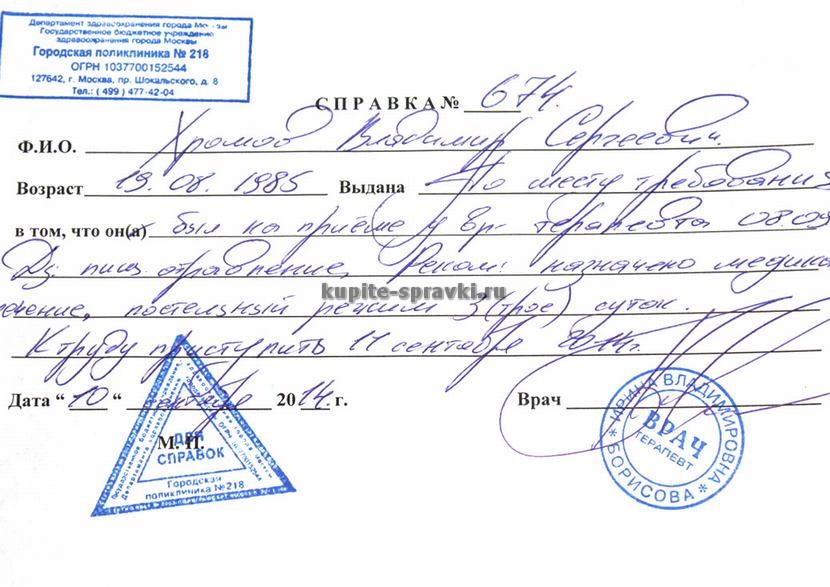 Департамент здравоохранения города Москвы
Государственное бюджетное учреждение
здравоохранения города Москвы
Городская поликлиника № 218
ОГРН 1037700152544
127642, г. Москва, пр. Шокальского, д. 8
Тел.: ( 499 ) 477-42-04
СПРАВКА № 674.
Ф.И.О. Хромов Владимир Сергеевич.
Возраст 19.08. 1985 Выдана По месту требования
в том, что он(а) был на приёме у вр- терапевта 08.09
Дz: пищ. отравление, Реком: назначено медика
ечение, постельный режим 3 (трое) суток.
kupite-spravki.ru
К труду приступить 11 сентября 2014г.
Дата “ 10 “ сентября 2014 г.
Врач
М. П.
ДЛЯ
СПРАВОК
Городская
поликлиника №218
ИРИНА ВЛАДИМИРОВНА
ВРАЧ
ТЕРАПЕВТ
* БОРИСОВА *